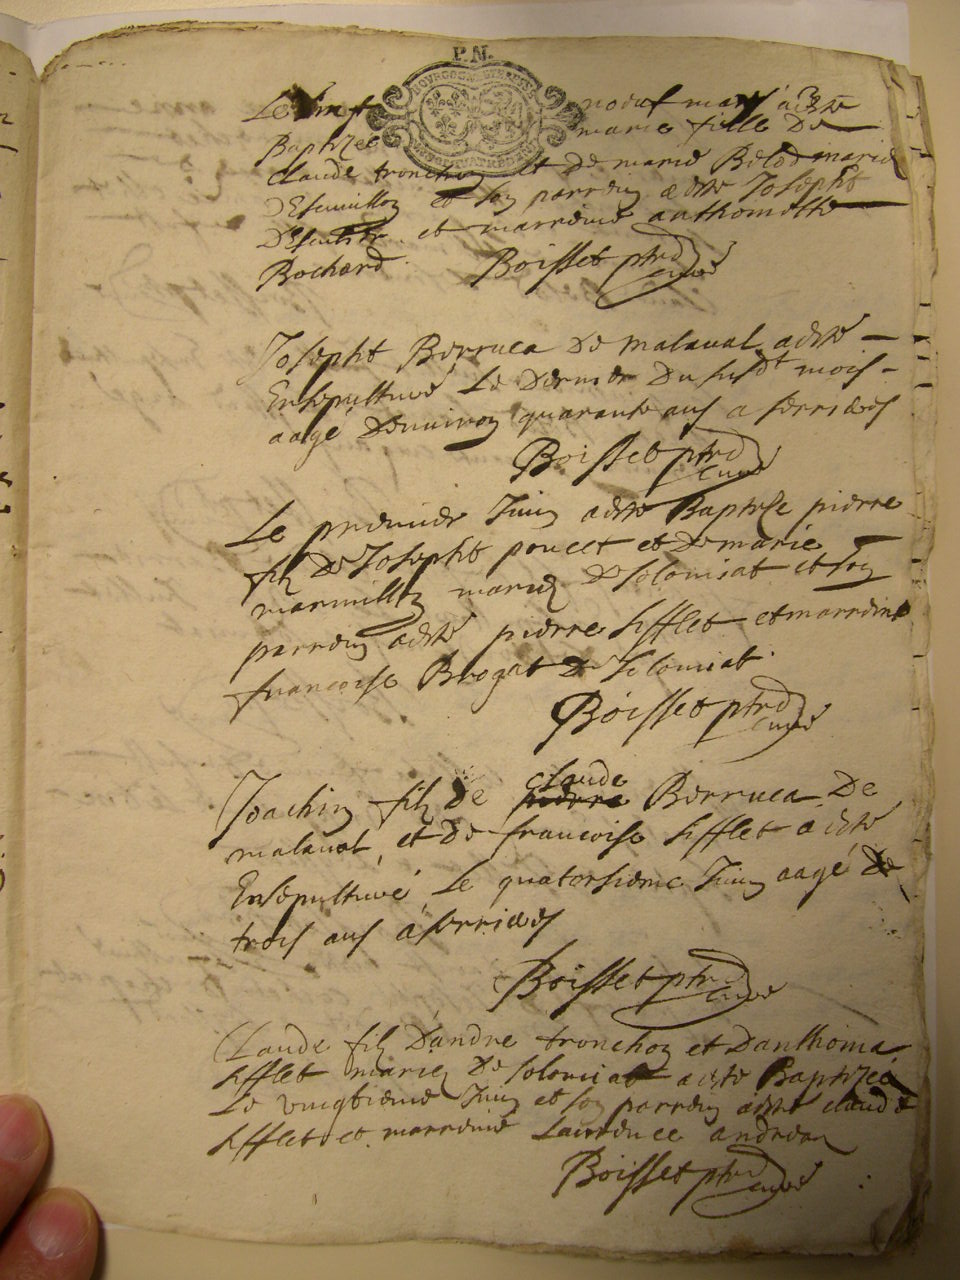 P. N.
BOURGOGNE ET BRESSE
Le vingt noeuf may a esté
Baptizée marie fille De
claude tronchon et De marie Belod mariés
D'Escuillon et son parrein a esté Joseph
et marreine anthoinette
Bochard. Boisset ptre
curé
Joseph Berruca De malaval a esté
Ensepulturé Le Dernier Du susdt mois
aagé Denviron quarante ans a serrieres
Boisset ptre
curé
Le premier Juin a esté Baptize pierre
filz De Joseph poncet et De marie
marmillon mariez De solomiat et son
parrein a esté pierre sifflet et marreine
francoise Brogat De solomiat.
Boisset ptre
curé
claude
Joachin filz De pierre Berruca De
malaval, et De francoise sifflet a esté
Ensepulturé Le quatorsieme Juin aagé De
trois ans a serrieres
Boisset ptre
curé
Claude filz D'andre tronchon et Danthoina
sifflet mariez De solomiat a esté Baptizé
Le vingtieme Juin et son parrein a esté claude
sifflet et marreine Laurence andrea
Boisset ptre
curé